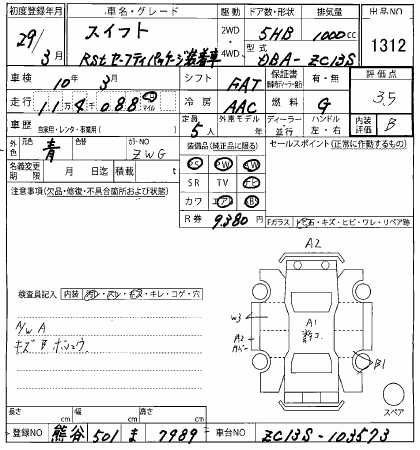 初度登録年月 車名・グレード 駆動 ドア数・形状 排気量 出品NO
29/3月 スイフト 2WD 5HB 1000cc 1312
RSt セーフティパッケージ装着車 4WD 型式 DBA-ZC13S
車検 10年3月 シフト FAT 保証書 有・無 評価点
走行 11万4千088 km マイル 冷房 AAC 燃料 G 3.5
車歴 自家用・レンタ・事業用( ) 定員 5人 外車モデル 年 ディーラー・並行 ハンドル 左・右 内装評価 B
外色 元色 青 色替 カラーNO ZWG 装備品(純正品に限る) セールスポイント(正常に作動するもの)
名義変更期限 月 日迄 積載 t PS PW AW
SR TV ナビ
注意事項(欠品・修復・不具合箇所および状態) カワ エアB ABS
R券 9,380円 Fガラス トビ石・キズ・ヒビ・ワレ・リペア跡
A2
検査員記入 内装 汚レ・スレ・キズ・キレ・コゲ・穴
W3 A1
N/W A A2
キズ B ボシュウ B1
スペア
長さ cm 幅 cm 高さ cm
登録NO 熊谷 501 ま 7989 車台NO ZC13S-103573